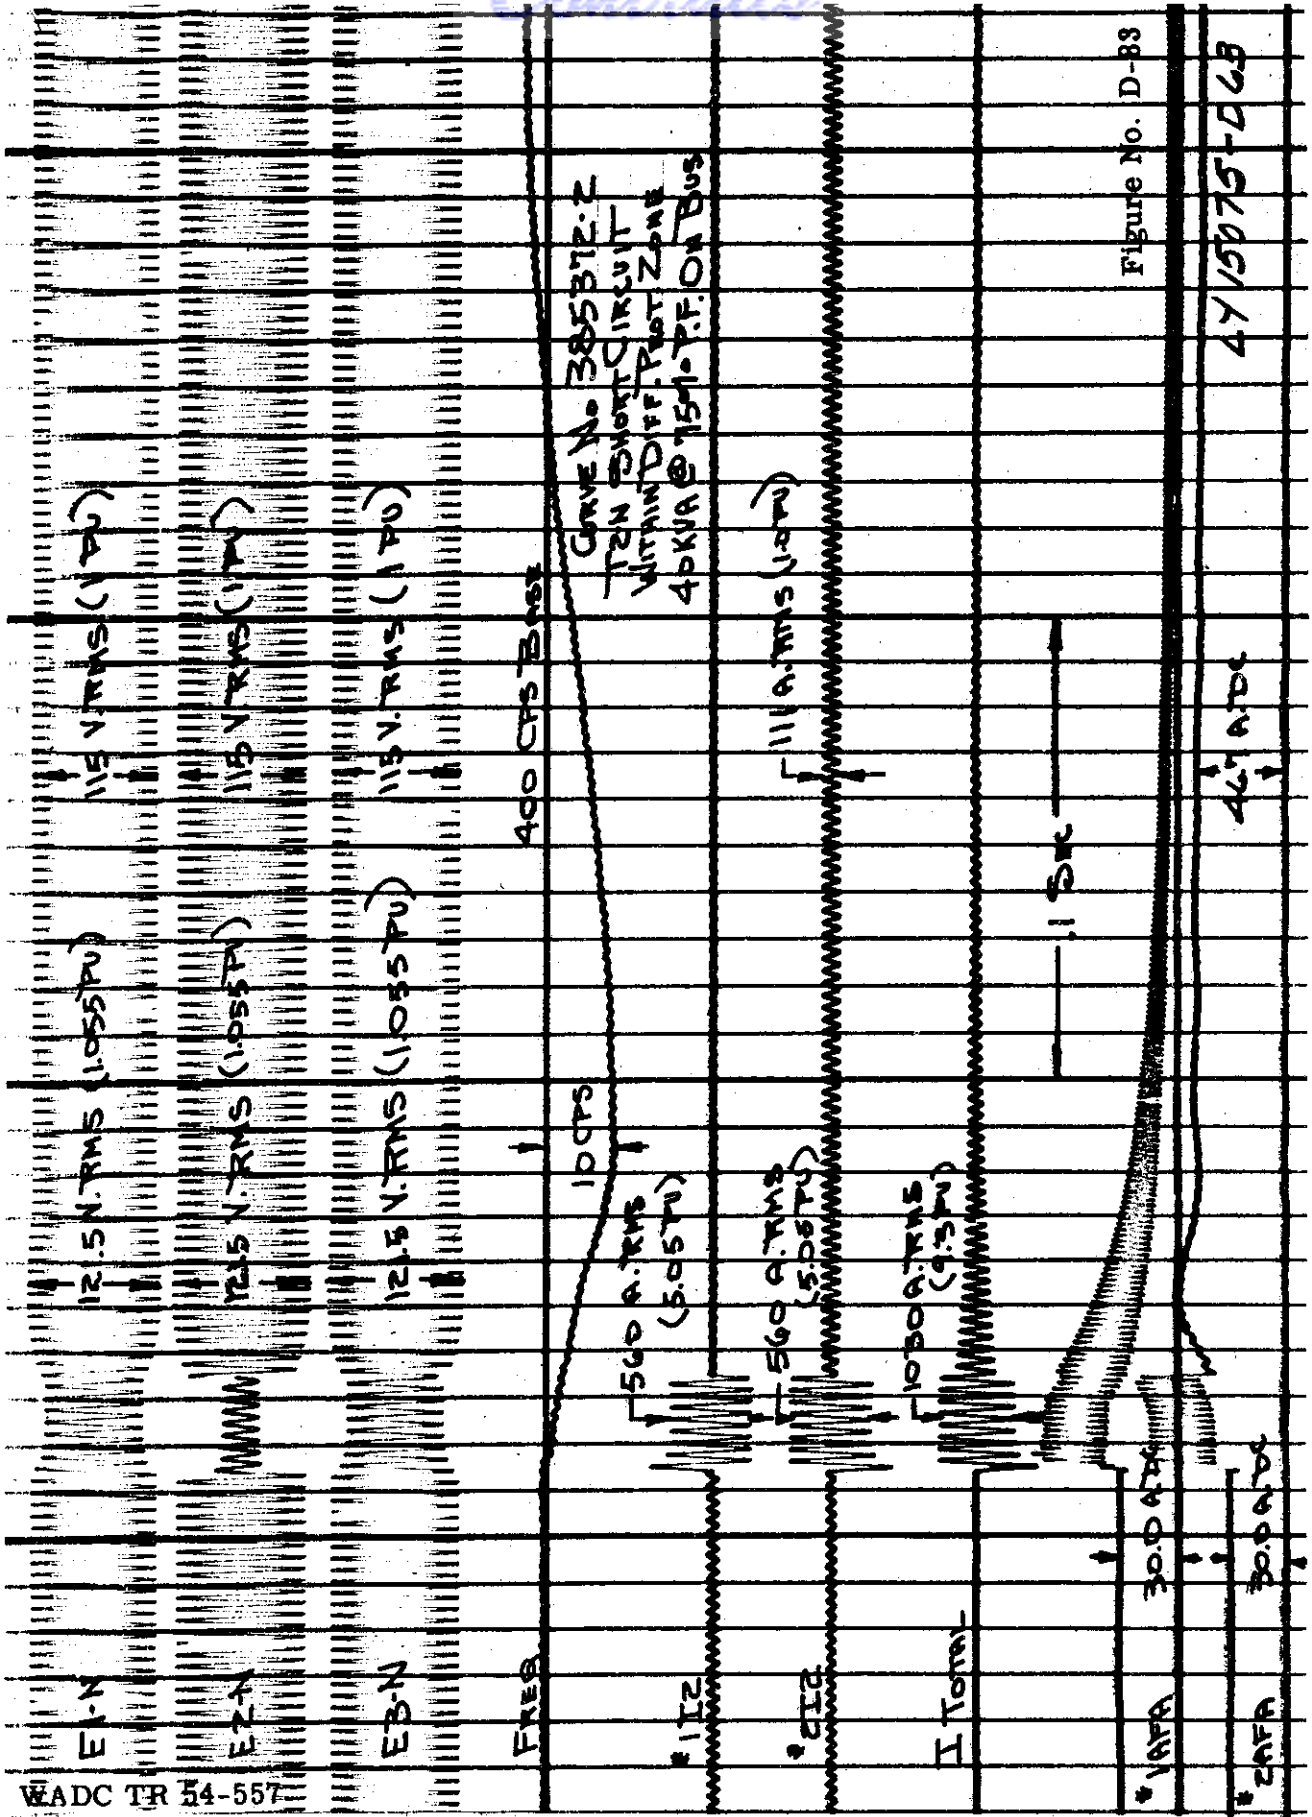 E1-N
121.5 V. RMS (1.055 PU)
115 V. RMS (1 PU)
E2-N
121.5 V. RMS (1.055 PU)
115 V. RMS (1 PU)
E3-N
121.5 V. RMS (1.055 PU)
115 V. RMS (1 PU)
FREQ
400 CPS BASE
10 CPS
CURVE No 385372-2
T2N SHORT CIRCUIT
WITHIN DIFF. PROT. ZONE
40KVA @ 75% P.F. ON BUS
# 1I2
560 A. RMS
(5.05 PU)
# 2I2
560 A. RMS
(5.05 PU)
111 A. RMS (1.0 PU)
I TOTAL
1030 A. RMS
(9.3 PU)
.1 SEC
# 1AFA
30.0 A. DC
# 2AFA
30.0 A. DC
46.7 A. DC
Figure No. D-83
4Y 15075-D63
WADC TR 54-557